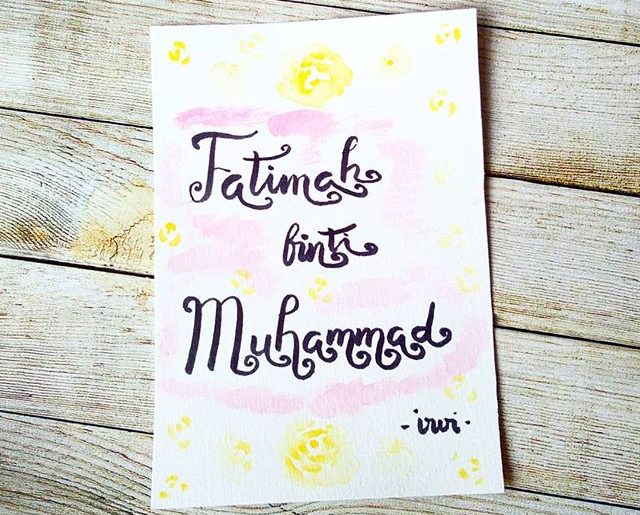 Fatimah
binti
Muhammad
-irvi-